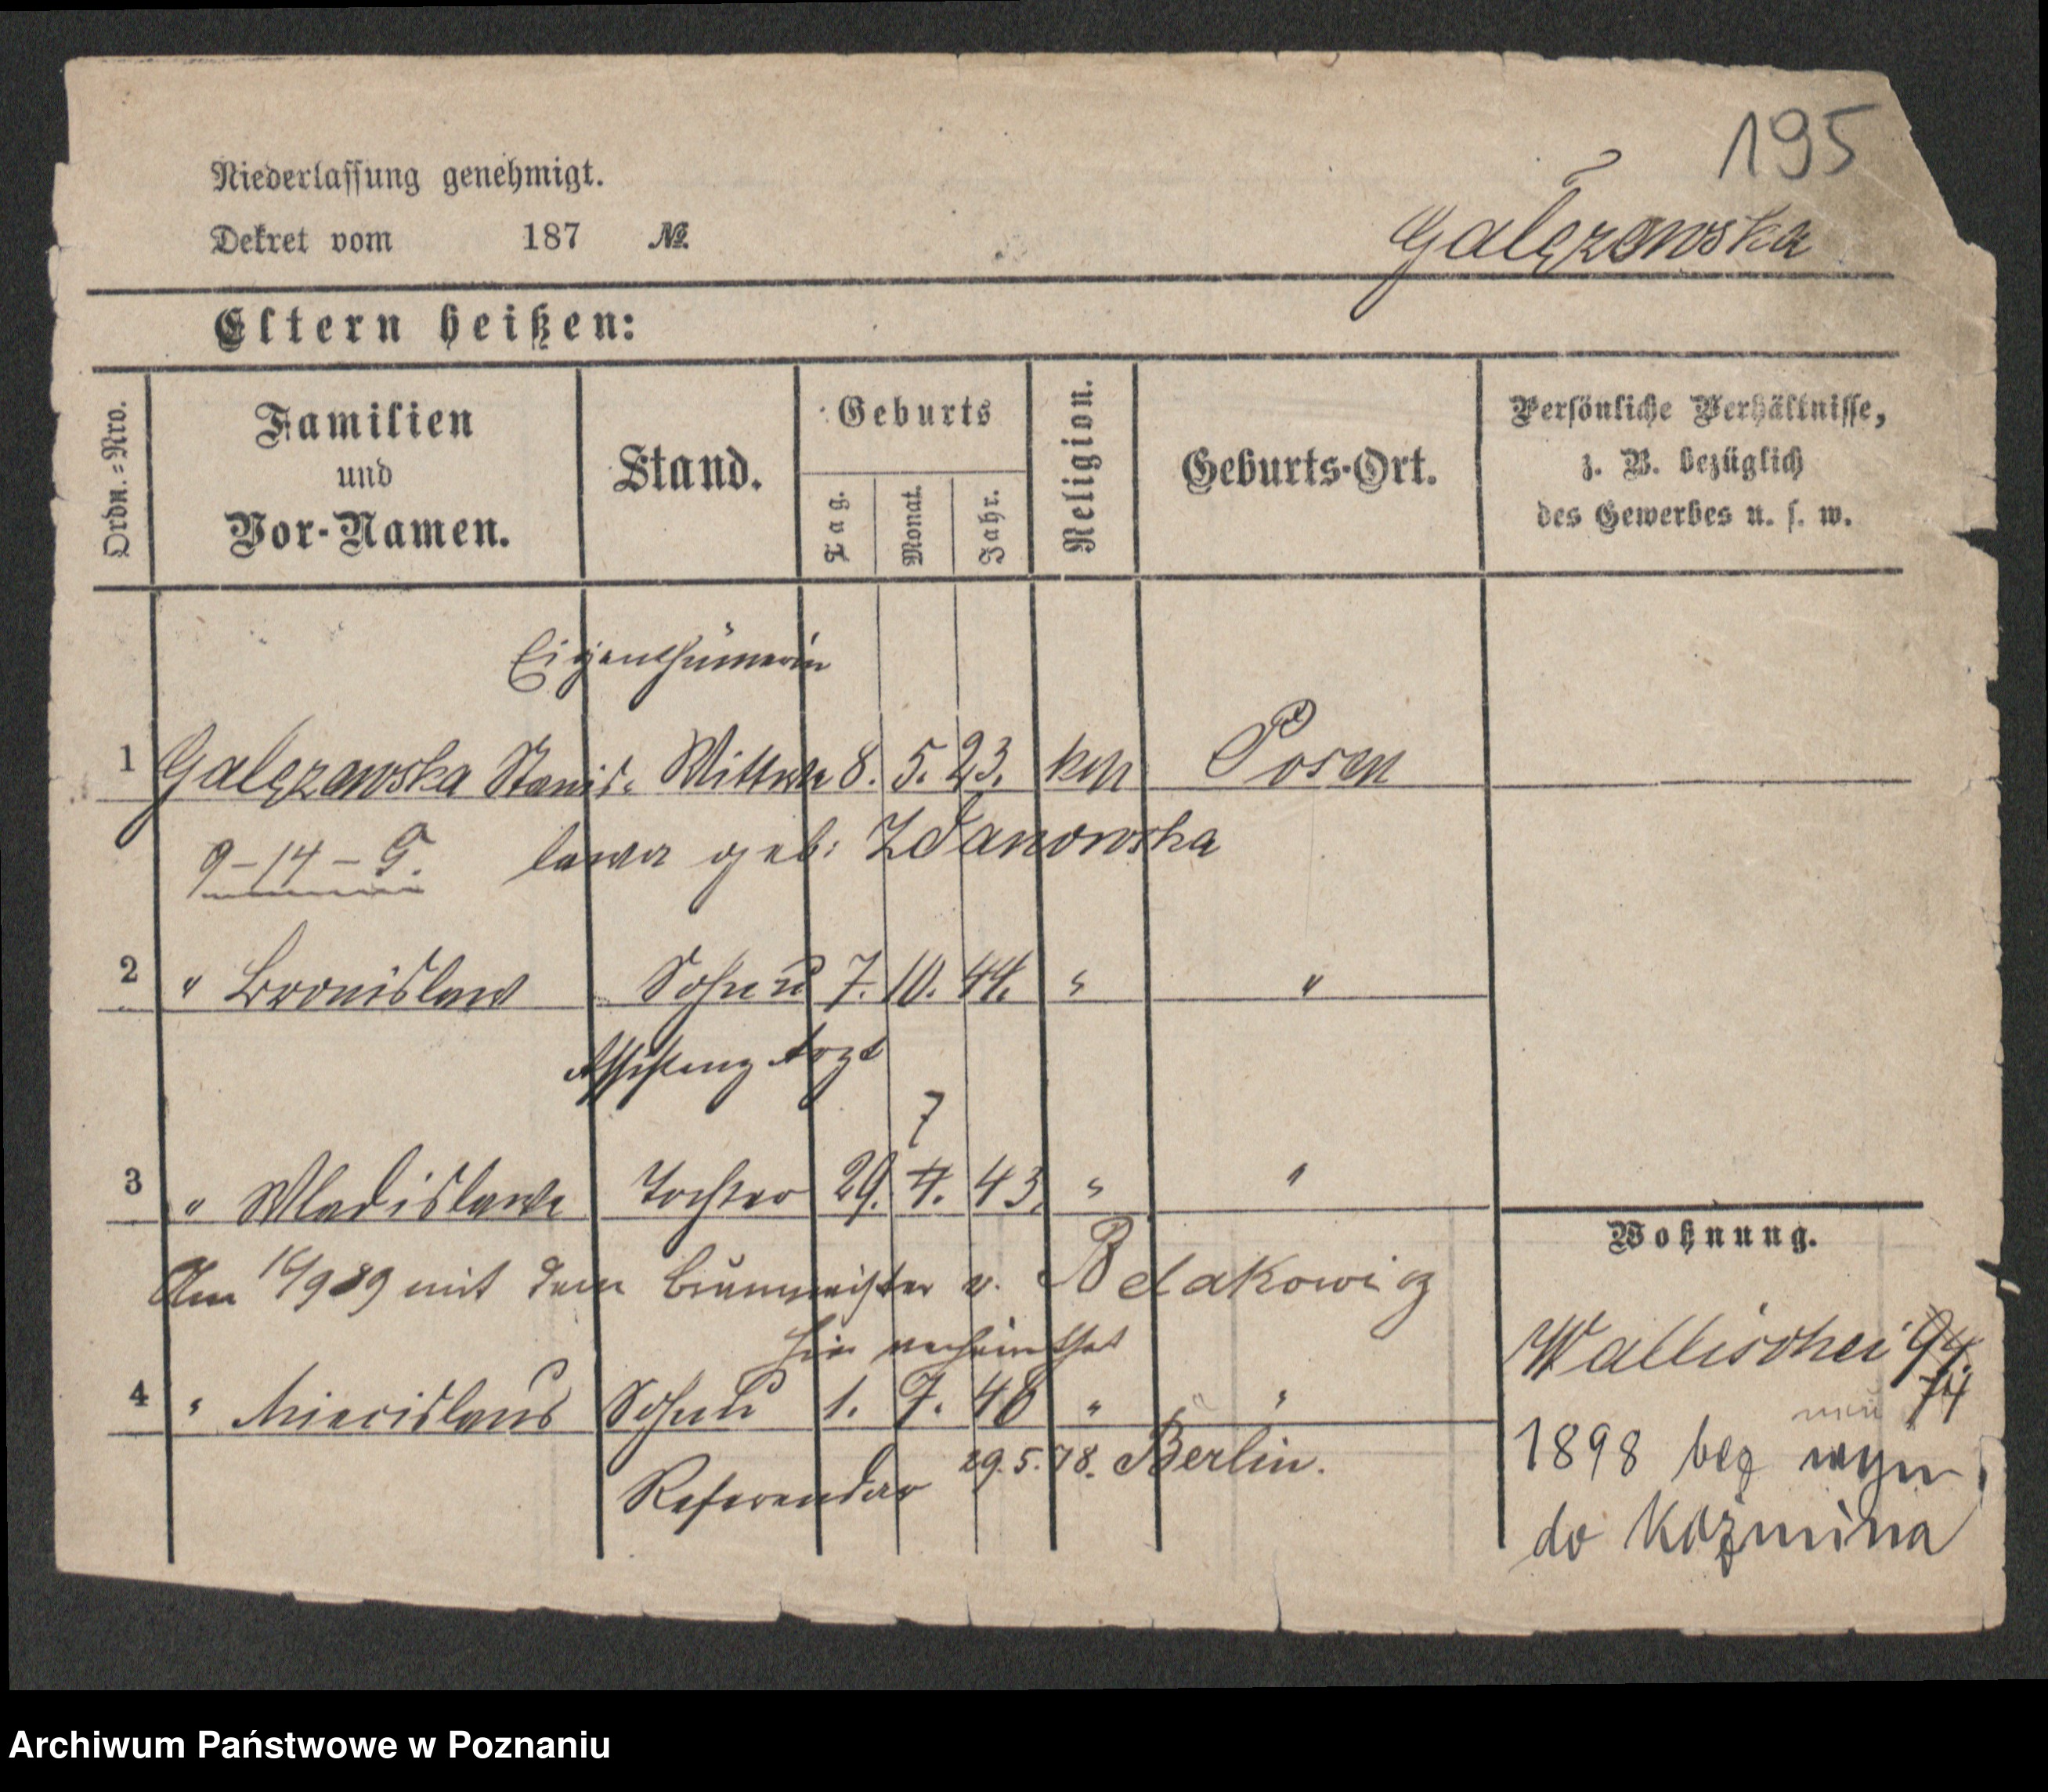 195
Niederlassung genehmigt.
Dekret vom 187 №
Galęzowska
Eltern heißen:
Ordn.=Nro.
Familien und Vor-Namen.
Stand.
Geburts
Tag. Monat. Jahr.
Religion.
Geburts-Ort.
Persönliche Verhältnisse,
z. B. bezüglich
des Gewerbes u. s. w.
Eigenthümerin
1 Galęzowska Stanis- Wittwe 8. 5. 23. kth Posen
9-14-G. lawa geb: Zdanowska
2 " Bronislaw Sohn 7. 10. 44. " "
Assistenz Arzt
7
3 " Wladislawa Tochter 29. 4. 43. " "
Am 989 mit dem Baumeister v.
hier verheirathet
4 " Miecislaus Sohn 1. 7. 48 " "
Referendar 29.5.78. Berlin.
Wohnung.
Wallischei 94.
neu 74
1898 bez wym.
do Koźmina
Archiwum Państwowe w Poznaniu